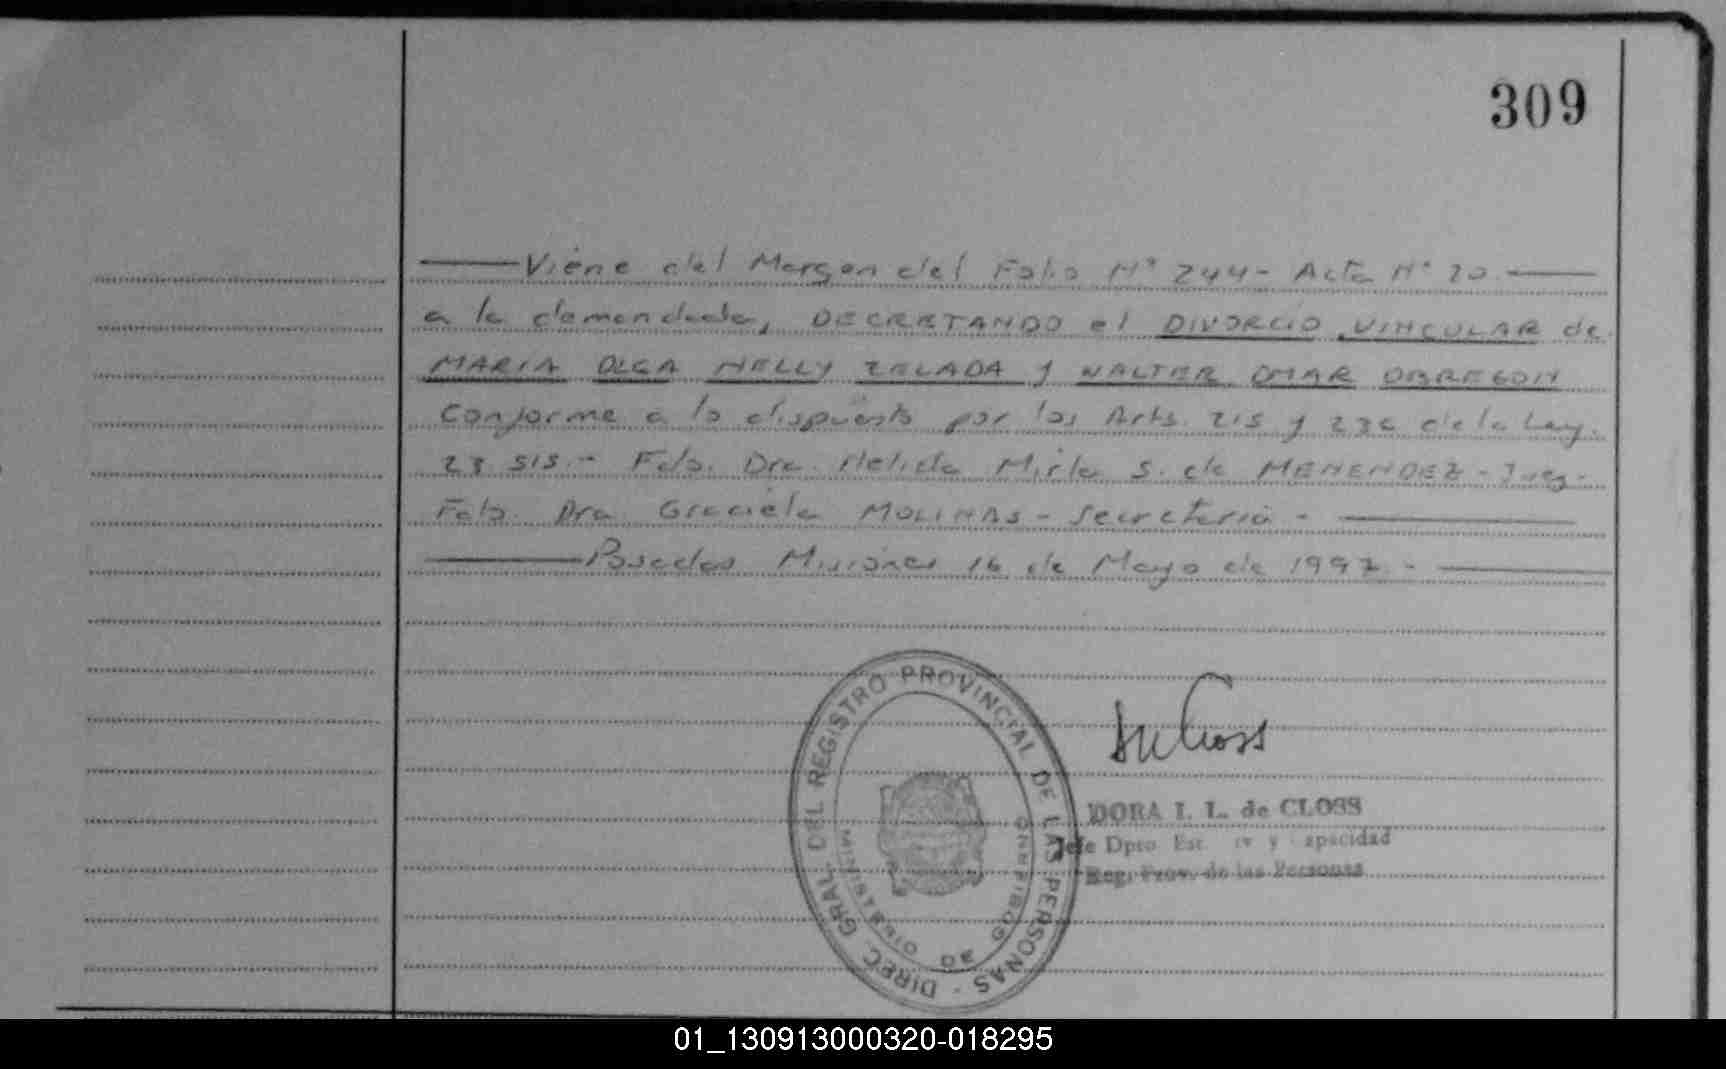 309
Viene del Margen del Folio Nº 244- Acta Nº 20.
a la demandada, DECRETANDO el DIVORCIO VINCULAR de
MARIA OLGA NELLY ZELADA y WALTER OMAR OBREGON
Conforme a lo dispuesto por los Arts. 215 y 236 de la Ley.
23 515.- Fdo. Dra. Nelida Mirla S. de MENENDEZ - Juez-
Fdo. Dra Graciela MOLINAS - Secretaria -
Posadas Misiones 16 de Mayo de 1997.-
DIREC. GRAL. DEL REGISTRO PROVINCIAL DE LAS PERSONAS -
MINISTERIO DE GOBIERNO
DORA I. L. de CLOSS
Jefe Dpto. Est. y
Reg. Prov. de las Personas
01_130913000320-018295